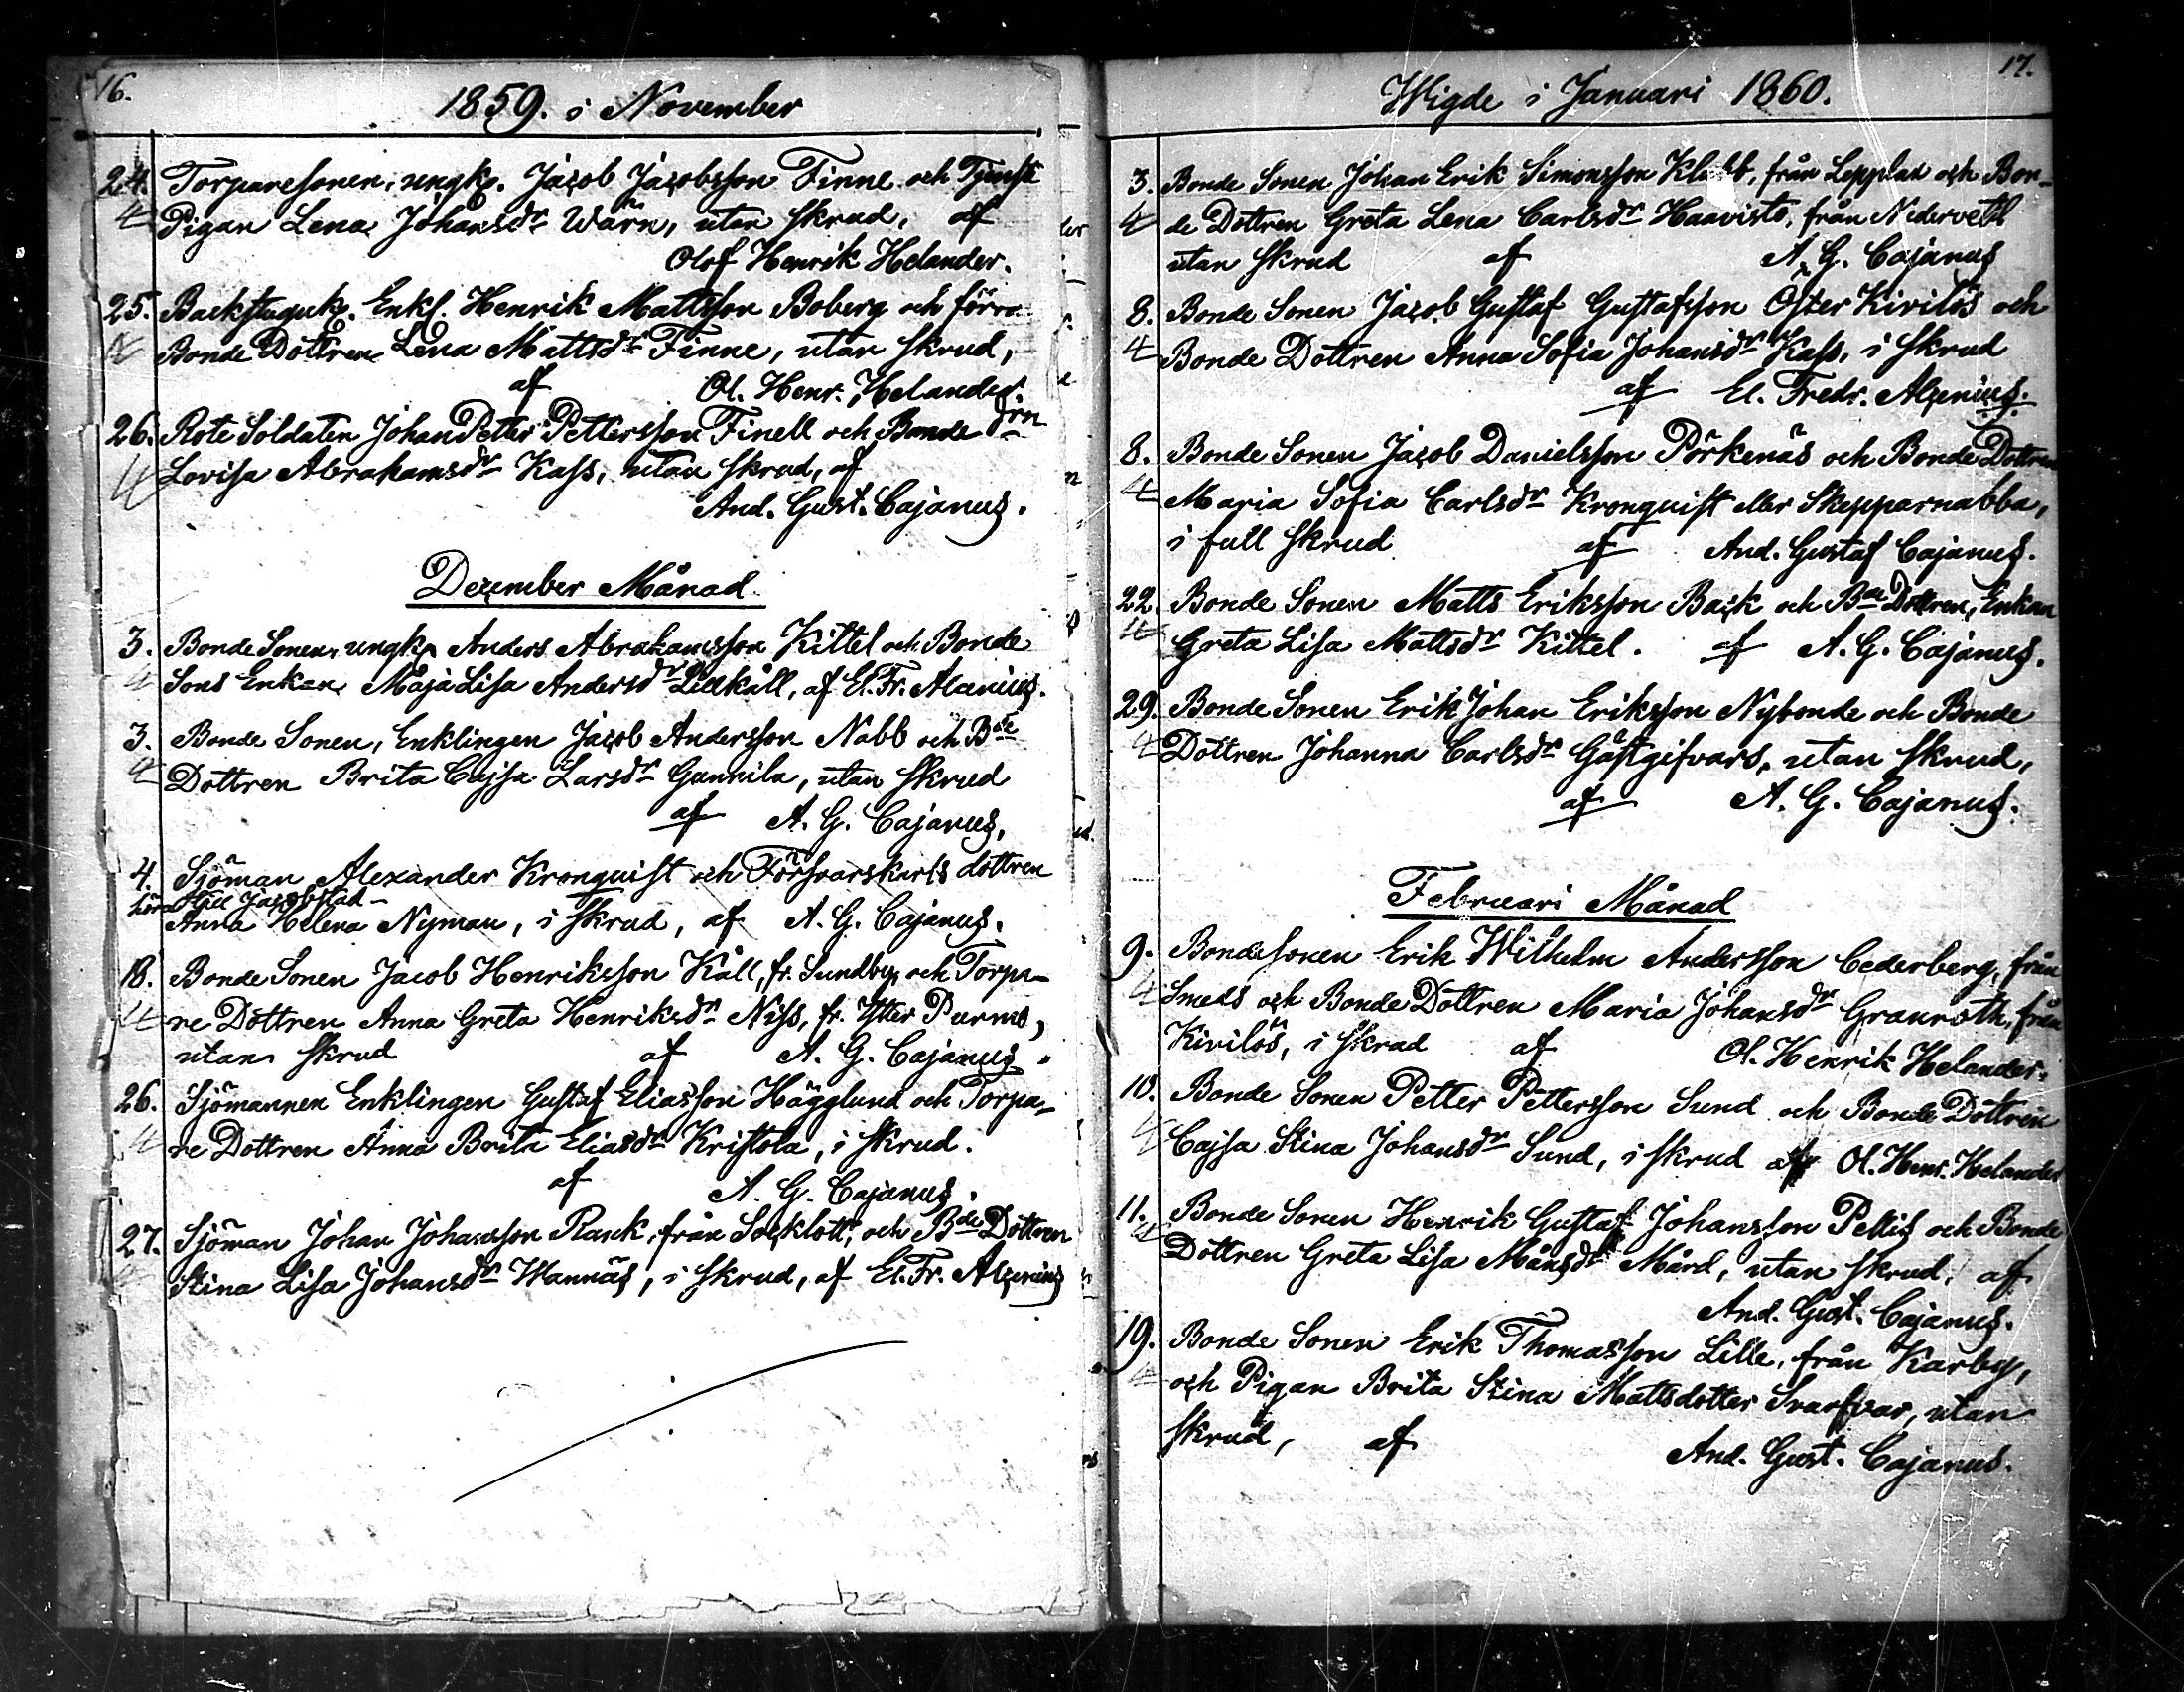 16.
1859. i November
24. Torparesonen, ungk. Jacob Jacobsson Finne och Tjenste
4 Pigan Lena Johansdr Wärn, utan skrud, af
Olof Henrik Helander.
25. Backstuguk. Enkl. Henrik Mattsson Boberg och förra
4 Bonde Dottren Lena Mattsdr Finne, utan skrud,
af Ol. Henr. Helander.
26. Rote Soldaten Johan Petter Pettersson Finell och Bonde drn
4 Lovisa Abrahamsdr Kass, utan skrud, af
And. Gust. Cajanus.
Dezember Månad.
3. Bonde Sonen, ungk. Anders Abrahamsson Kittel och Bonde
4 Sons Enkan Maja Lisa Andersdr Lillkåll, af El. Fr. Alcenius.
3. Bonde Sonen, Enklingen Jacob Andersson Nabb och Bde
4 Dottren Brita Cajsa Larsdr Gunnila, utan skrud
af A. G. Cajanus,
4. Sjöman Alexander Kronquist och Försvarskarls dottren
hör till Jacobstad
Anna Helena Nyman, i skrud, af A. G. Cajanus.
18. Bonde Sonen Jacob Henriksson Kåll, fr. Sundby, och Torpa-
4 re Dottren Anna Greta Henriksdr Niss, fr. Ytter Purmo,
utan skrud af A. G. Cajanus.
26. Sjömannen Enklingen Gustaf Eliasson Hägglund och Torpa-
4 re Dottren Anna Brita Eliasdr Kristola, i skrud.
af A. G. Cajanus.
27. Sjöman Johan Johansson Rank, från Socklott, och Bde Dottren
4 Stina Lisa Johansdr Wannäs, i skrud, af El. Fr. Alcenius
17.
Wigde i Januari 1860.
3. Bonde Sonen Johan Erik Simonsson från Lepplax och Bon-
4 de Dottren Greta Lena Carlsdr Haavisto, från Nedervetil
utan skrud af A. G. Cajanus
8. Bonde Sonen Jacob Gustaf Gustafsson Öster Kivilös och
4 Bonde Dottren Anna Sofia Johansdr Kass, i skrud
af El. Fredr. Alcenius.
8. Bonde Sonen Jacob Danielsson Pörkenäs och Bonde Dottren
4 Maria Sofia Carlsdr Kronquist eller Skepparnabba,
i full skrud af And. Gustaf Cajanus.
22. Bonde Sonen Matts Eriksson Back och Bde Dottren, Enkan
4 Greta Lisa Mattsdr Kittel. af A. G. Cajanus.
29. Bonde Sonen Erik Johan Eriksson Nybonde och Bonde
4 Dottren Johanna Carlsdr Gästgifvars, utan skrud,
af A. G. Cajanus.
Februari Månad
9. Bondesonen Erik Wilhelm Andersson Cederberg, från
4 Smeds och Bonde Dottren Maria Johansdr Granroth, från
Kivilös, i skrud af Ol. Henrik Helander.
10. Bonde Sonen Petter Pettersson Sund och Bonde Dottren
4 Cajsa Stina Johansdr Sund, i skrud af Ol. Henr. Helander
11. Bonde Sonen Henrik Gustaf Johansson Pellis och Bonde
4 Dottren Greta Lisa Månsdr Mård, utan skrud, af
And. Gust. Cajanus.
19. Bonde Sonen Erik Thomasson Lille, från Karby,
4 och Pigan Brita Stina Mattsdotter Svarfvar, utan
skrud, af And. Gust. Cajanus.